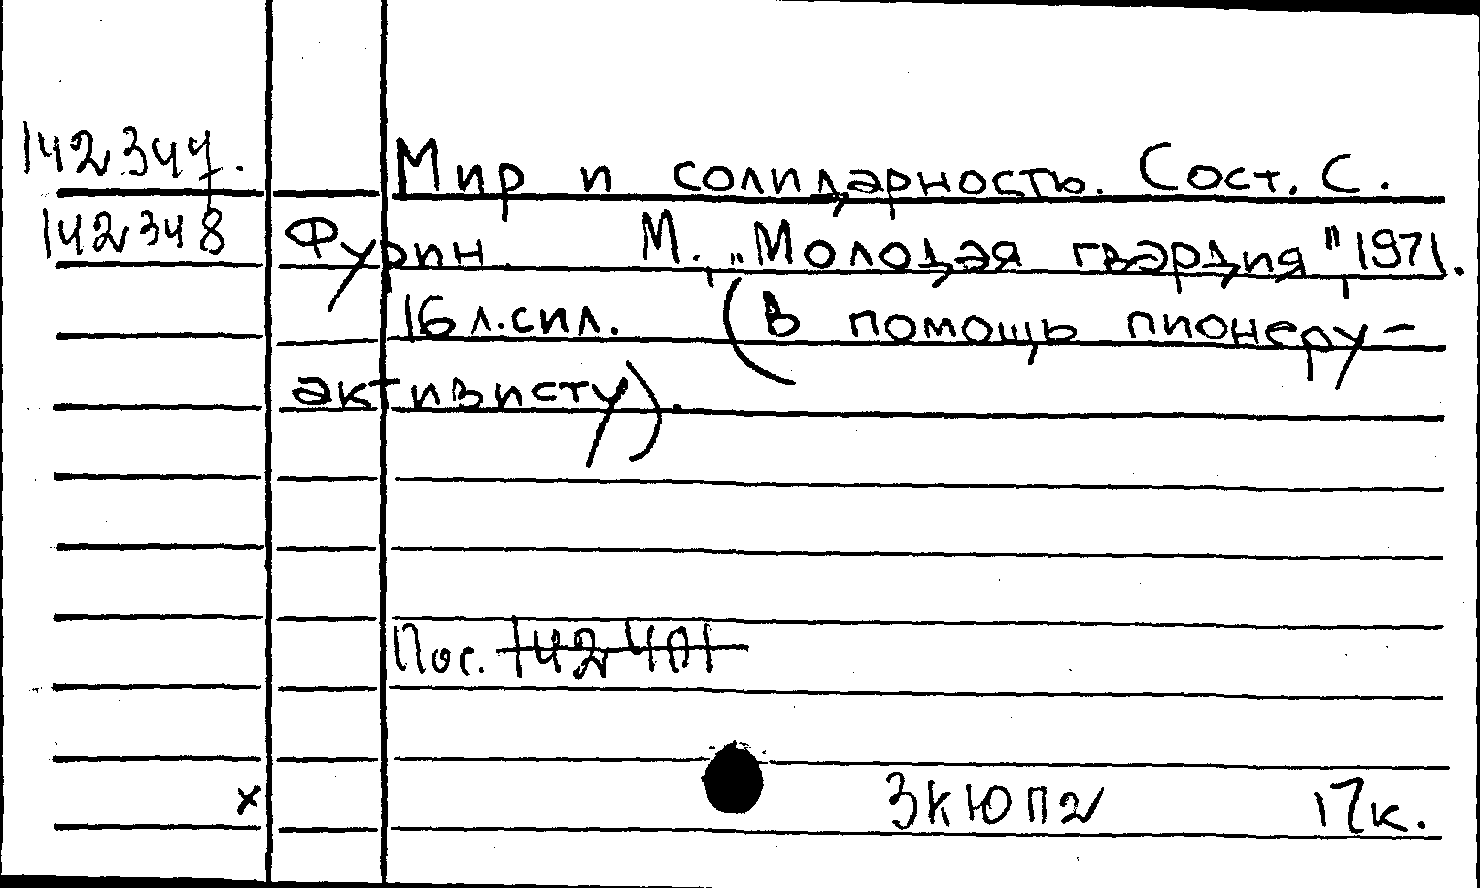 142347.
Мир и солидарность. Сост. С.
142348 Фурин. М., „Молодая гвардия" 1971.
16 л.сил. (В помощь пионеру-
активисту).
Пос.
ЗКЮП2 17к.